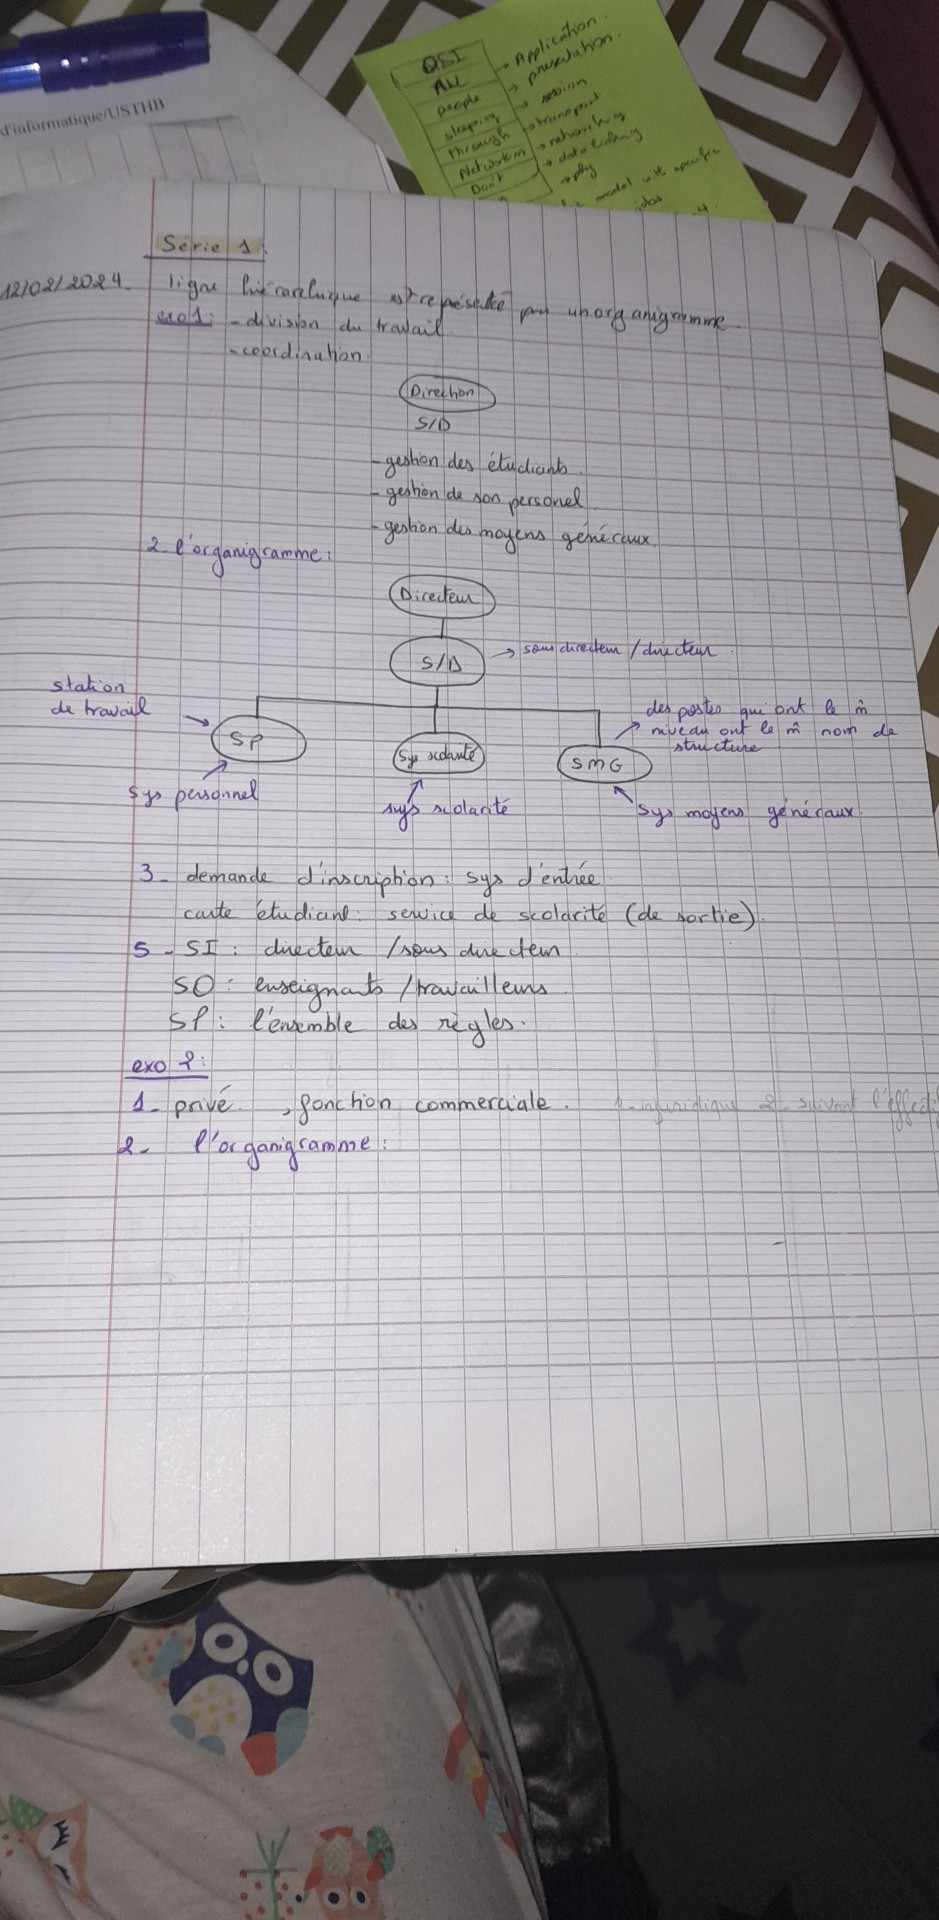 d'informatique/USTHB
OSI
All → Application.
people → presentation.
sleeping → session
through → transport
Network → networking
Don't → data linking
→ phy
model with specific
Série 1:
12/02/2024. ligne hiérarchique est représentée par un organigramme.
exo1: - division du travail
- coordination
Direction
S/D
- gestion des étudiants.
- gestion de son personel
- gestion des moyens généraux
2- l'organigramme:
Directeur
S/D → sous directeur / directeur.
station
de travail
des postes qui ont le m̂
niveau ont le m̂ nom de
structure
SP
Sys scolarité
SMG
Sys personnel
sys scolarité
Sys moyens généraux
3- demande d'inscription: sys d'entrée
carte étudiant: service de scolarité (de sortie).
5 - SI: directeur / sous directeur
SO: enseignants / travailleurs
SP: l'ensemble des règles.
exo 2:
1- privé, fonction commerciale. 2- suivant l'effectif
2- l'organigramme: